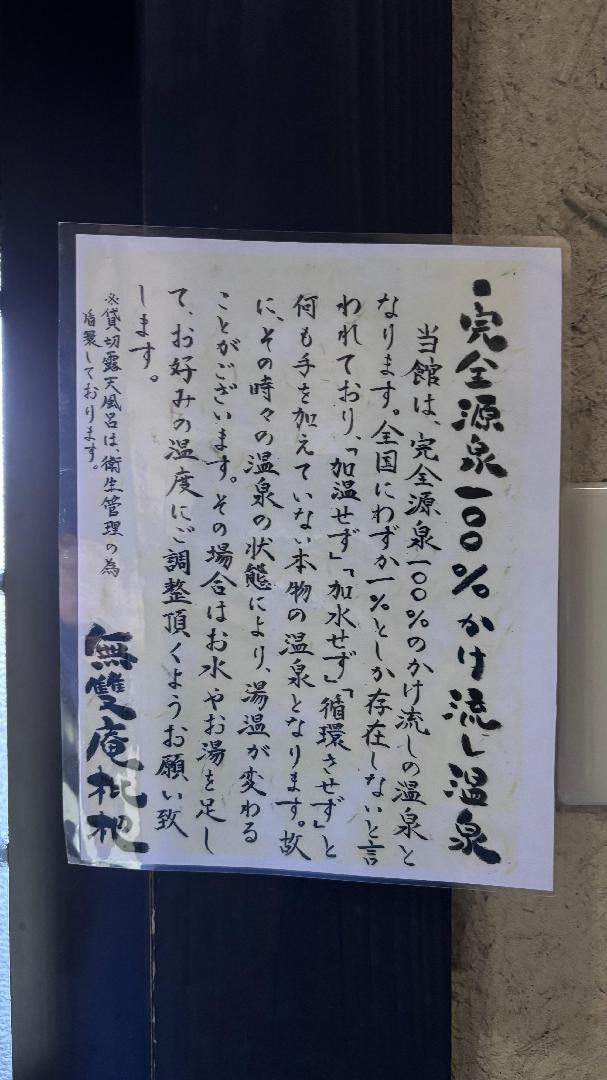 ・完全源泉一〇〇%かけ流し温泉
当館は、完全源泉一〇〇%のかけ流しの温泉と
なります。全国にわずか一%としか存在しないと言
われており、「加温せず」「加水せず」「循環させず」と
何も手を加えていない本物の温泉となります。故
に、その時々の温泉の状態により、湯温が変わる
ことがございます。その場合はお水やお湯を足し
て、お好みの温度にご調整頂くようお願い致
します。
※貸切露天風呂は、衛生管理の為
循環しております。
無雙庵枇杷